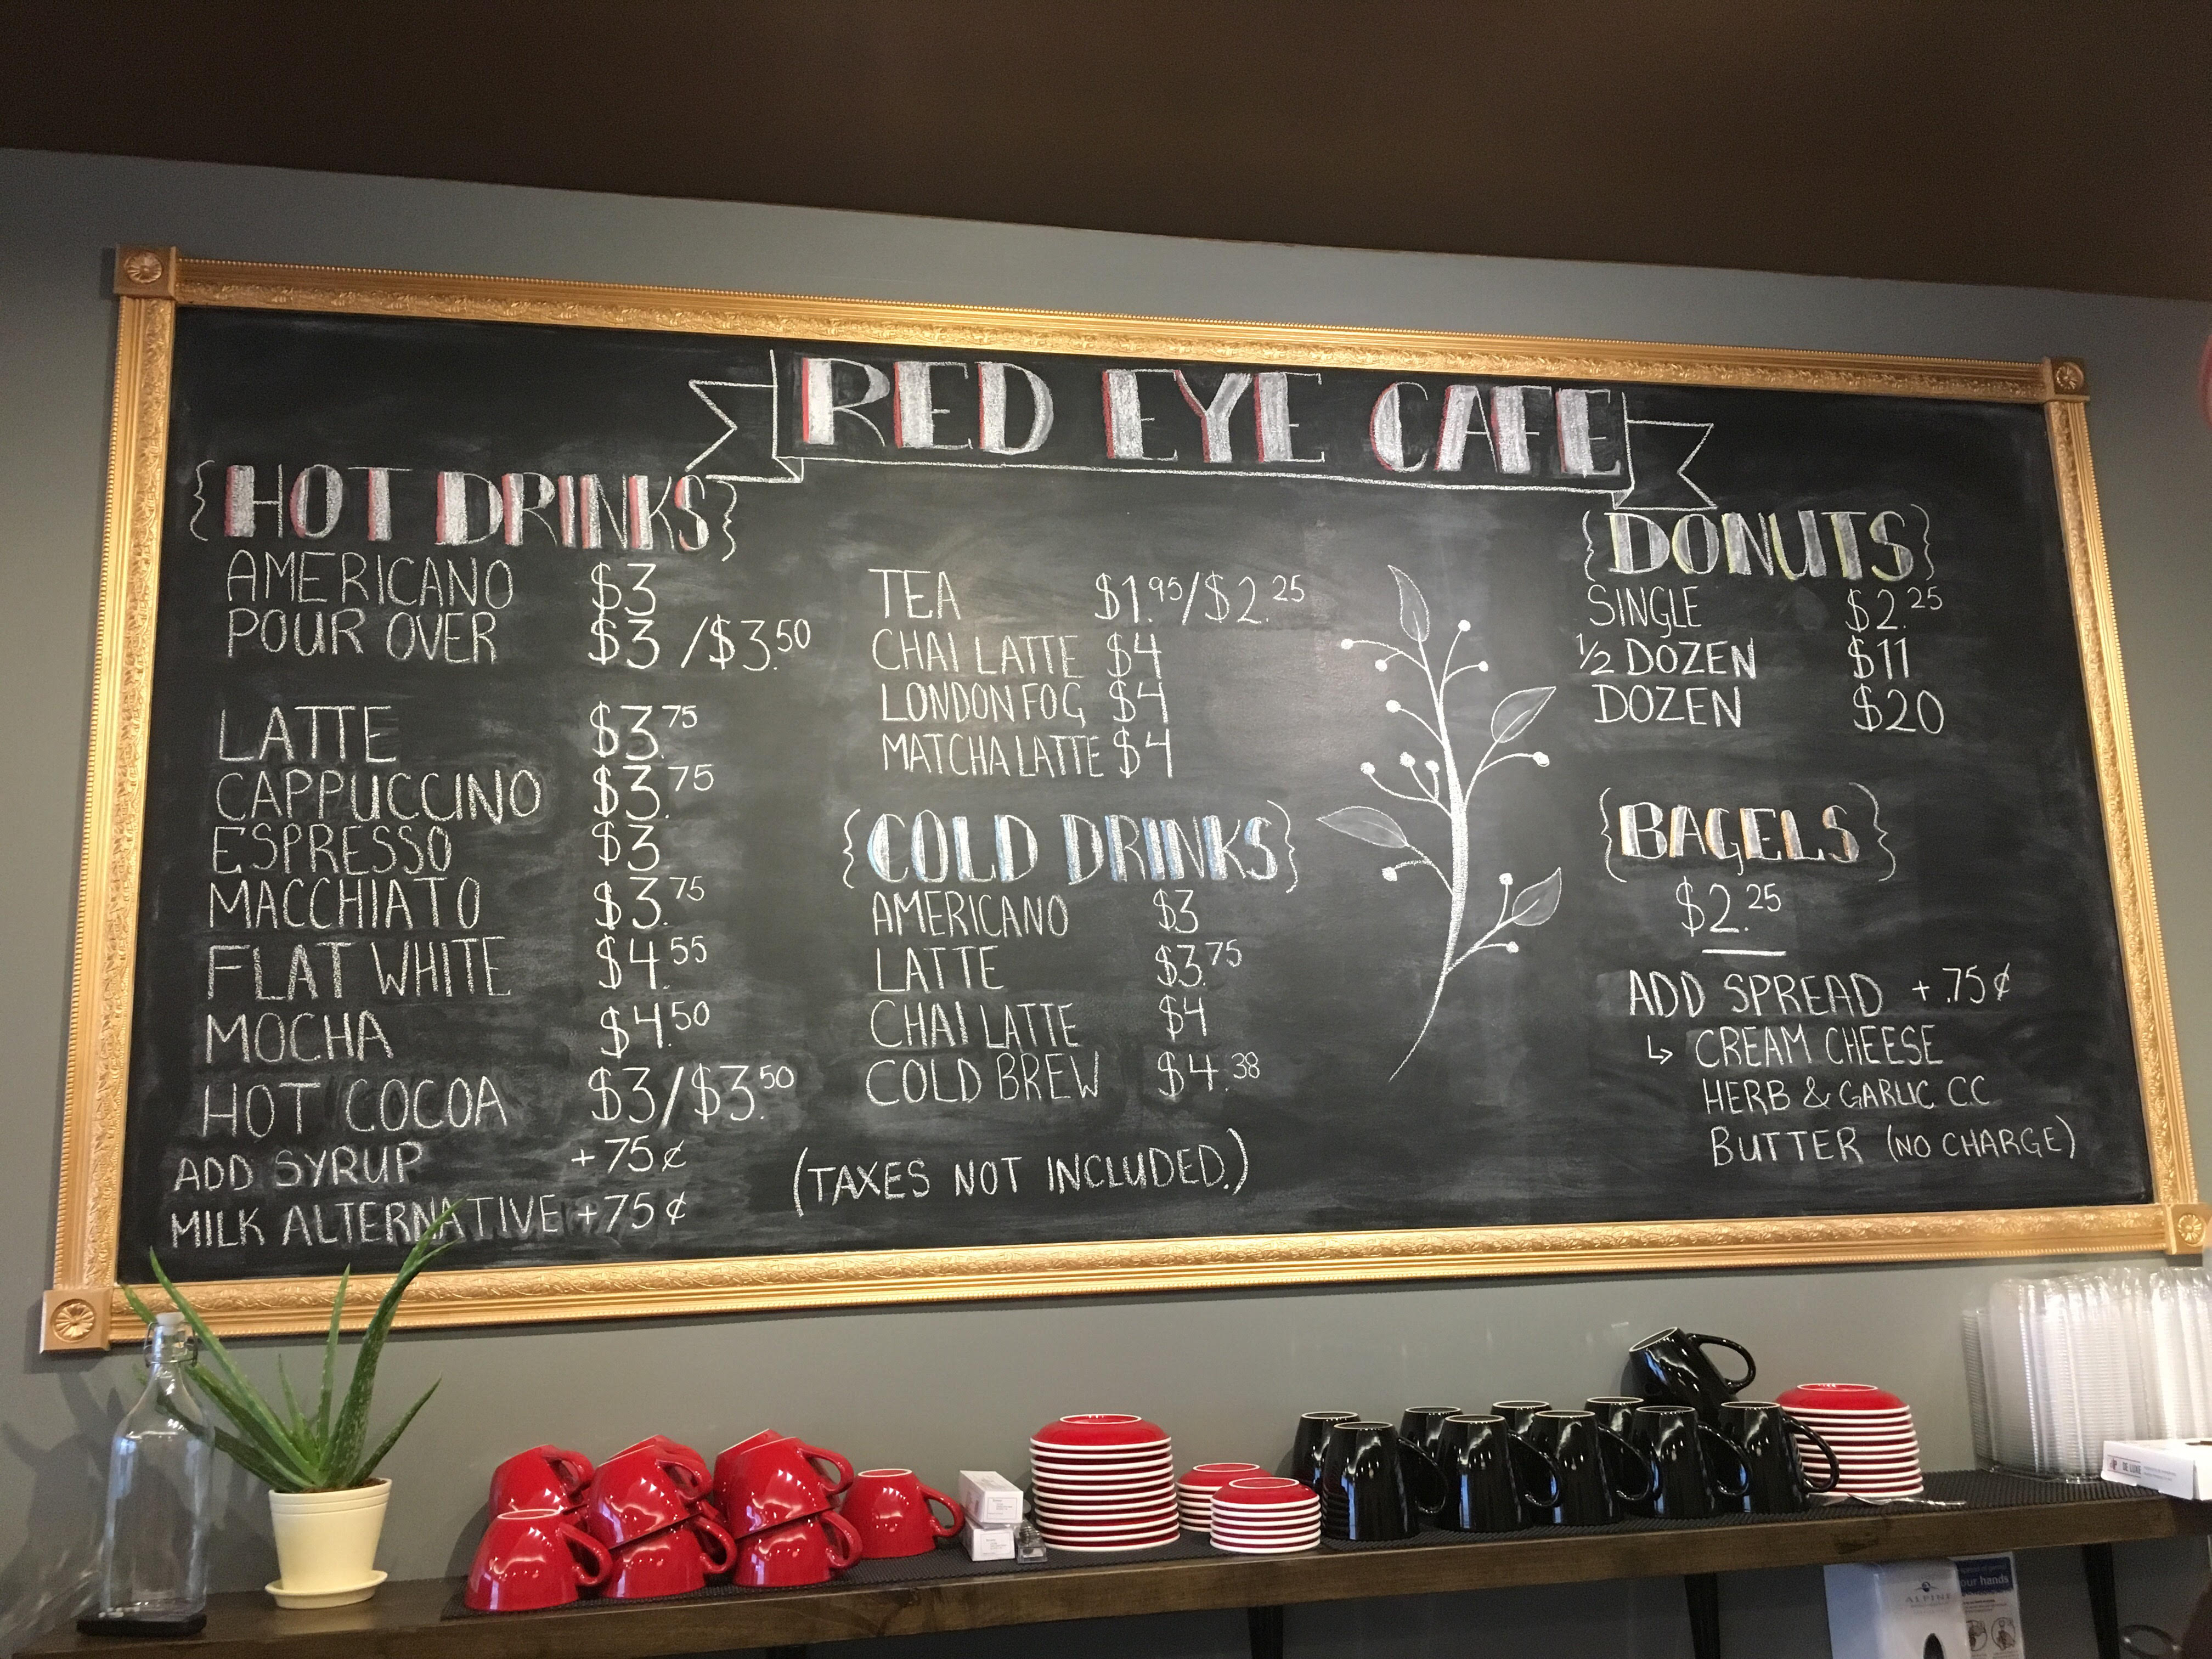 RED EYE CAFE
{HOT DRINKS}
AMERICANO $3
POUR OVER $3 / $3.50
LATTE $3.75
CAPPUCCINO $3.75
ESPRESSO $3
MACCHIATO $3.75
FLAT WHITE $4.55
MOCHA $4.50
HOT COCOA $3/$3.50
ADD SYRUP +75¢
MILK ALTERNATIVE +75¢
TEA $1.95/$2.25
CHAI LATTE $4
LONDON FOG $4
MATCHA LATTE $4
{COLD DRINKS}
AMERICANO $3
LATTE $3.75
CHAI LATTE $4
COLD BREW $4.38
(TAXES NOT INCLUDED.)
{DONUTS}
SINGLE $2.25
1/2 DOZEN $11
DOZEN $20
{BAGELS}
$2.25
ADD SPREAD + .75¢
↳ CREAM CHEESE
HERB & GARLIC C.C
BUTTER (NO CHARGE)
DE LUXE
ALPINE
our hands